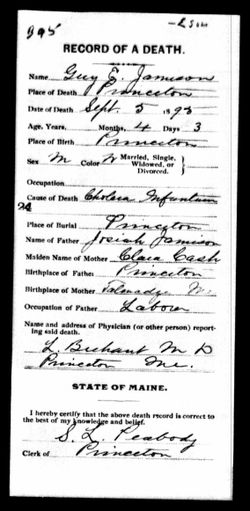 895
RECORD OF A DEATH.
Name Guy E. Jamison
Place of Death Princeton
Date of Death Sept. 5 1895
Age, Years, Months, 4 Days 3
Place of Birth Princeton
Sex M Color W Married, Single, Widowed, or Divorced.
Occupation
Cause of Death Cholera Infantum
24
Place of Burial Princeton
Name of Father Josiah Jamison
Maiden Name of Mother Clara Cash
Birthplace of Father Princeton
Birthplace of Mother Talmadge
Occupation of Father Laborer
Name and address of Physician (or other person) report-
ing said death.
L. Buchant M D
Princeton Me.
STATE OF MAINE.
I hereby certify that the above death record is correct to
the best of my knowledge and belief.
S. L. Peabody
Clerk of Princeton